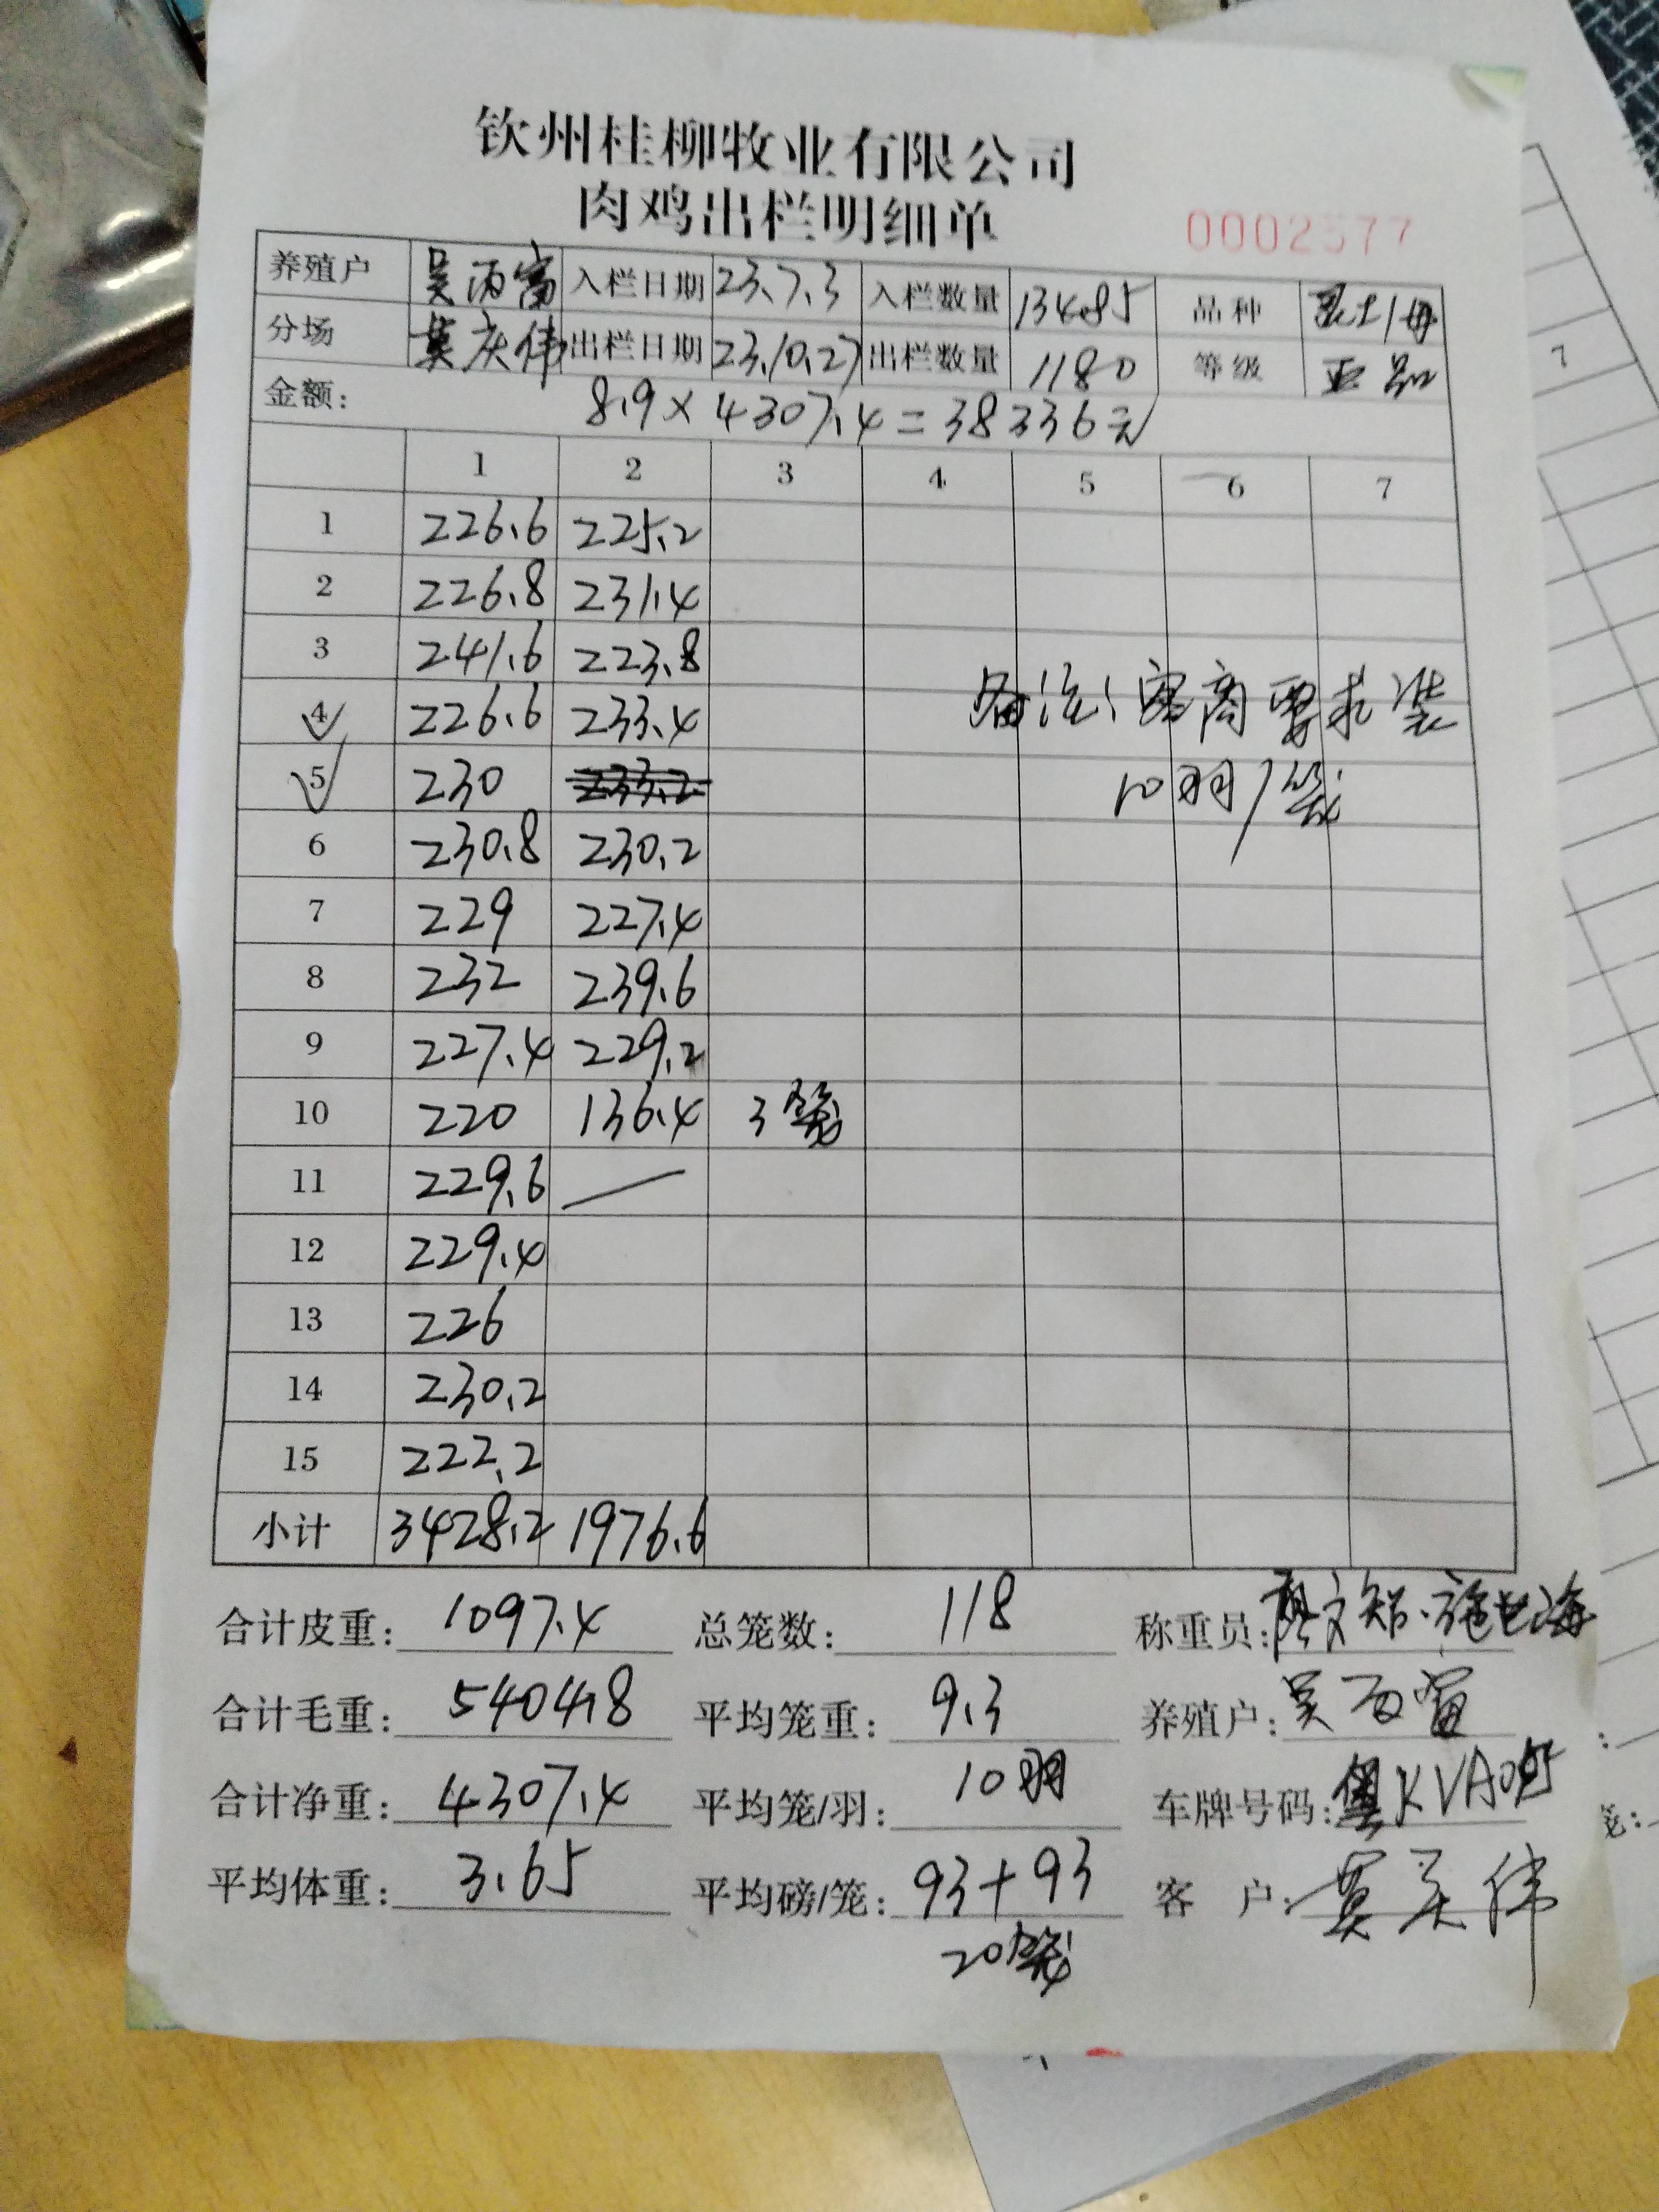 钦州桂柳牧业有限公司
肉鸡出栏明细单
0002577
养殖户 吴丙富 入栏日期 23.7.3 入栏数量 13485 品种
分场 莫庆伟 出栏日期 23.10.27 出栏数量 1180 等级
金额: 8.9×4307.4=38336元
1 2 3 4 5 6 7
1 226.6 225.2
2 226.8 231.4
3 241.6 223.8
4 226.6 233.4 备注:客商要求装
5 230 233.2 10羽/笼
6 230.8 230.2
7 229 227.4
8 232 239.6
9 227.4 229.2
10 220 136.4 3笼
11 229.6 —
12 229.4
13 226
14 230.2
15 222.2
小计 3428.2 1976.6
合计皮重: 1097.4 总笼数: 118 称重员:
合计毛重: 5404.8 平均笼重: 9.3 养殖户: 吴丙富
合计净重: 4307.4 平均笼/羽: 10羽 车牌号码: 粤KVA0
平均体重: 3.65 平均磅/笼: 93+93 客 户: 莫庆伟
20笼
7